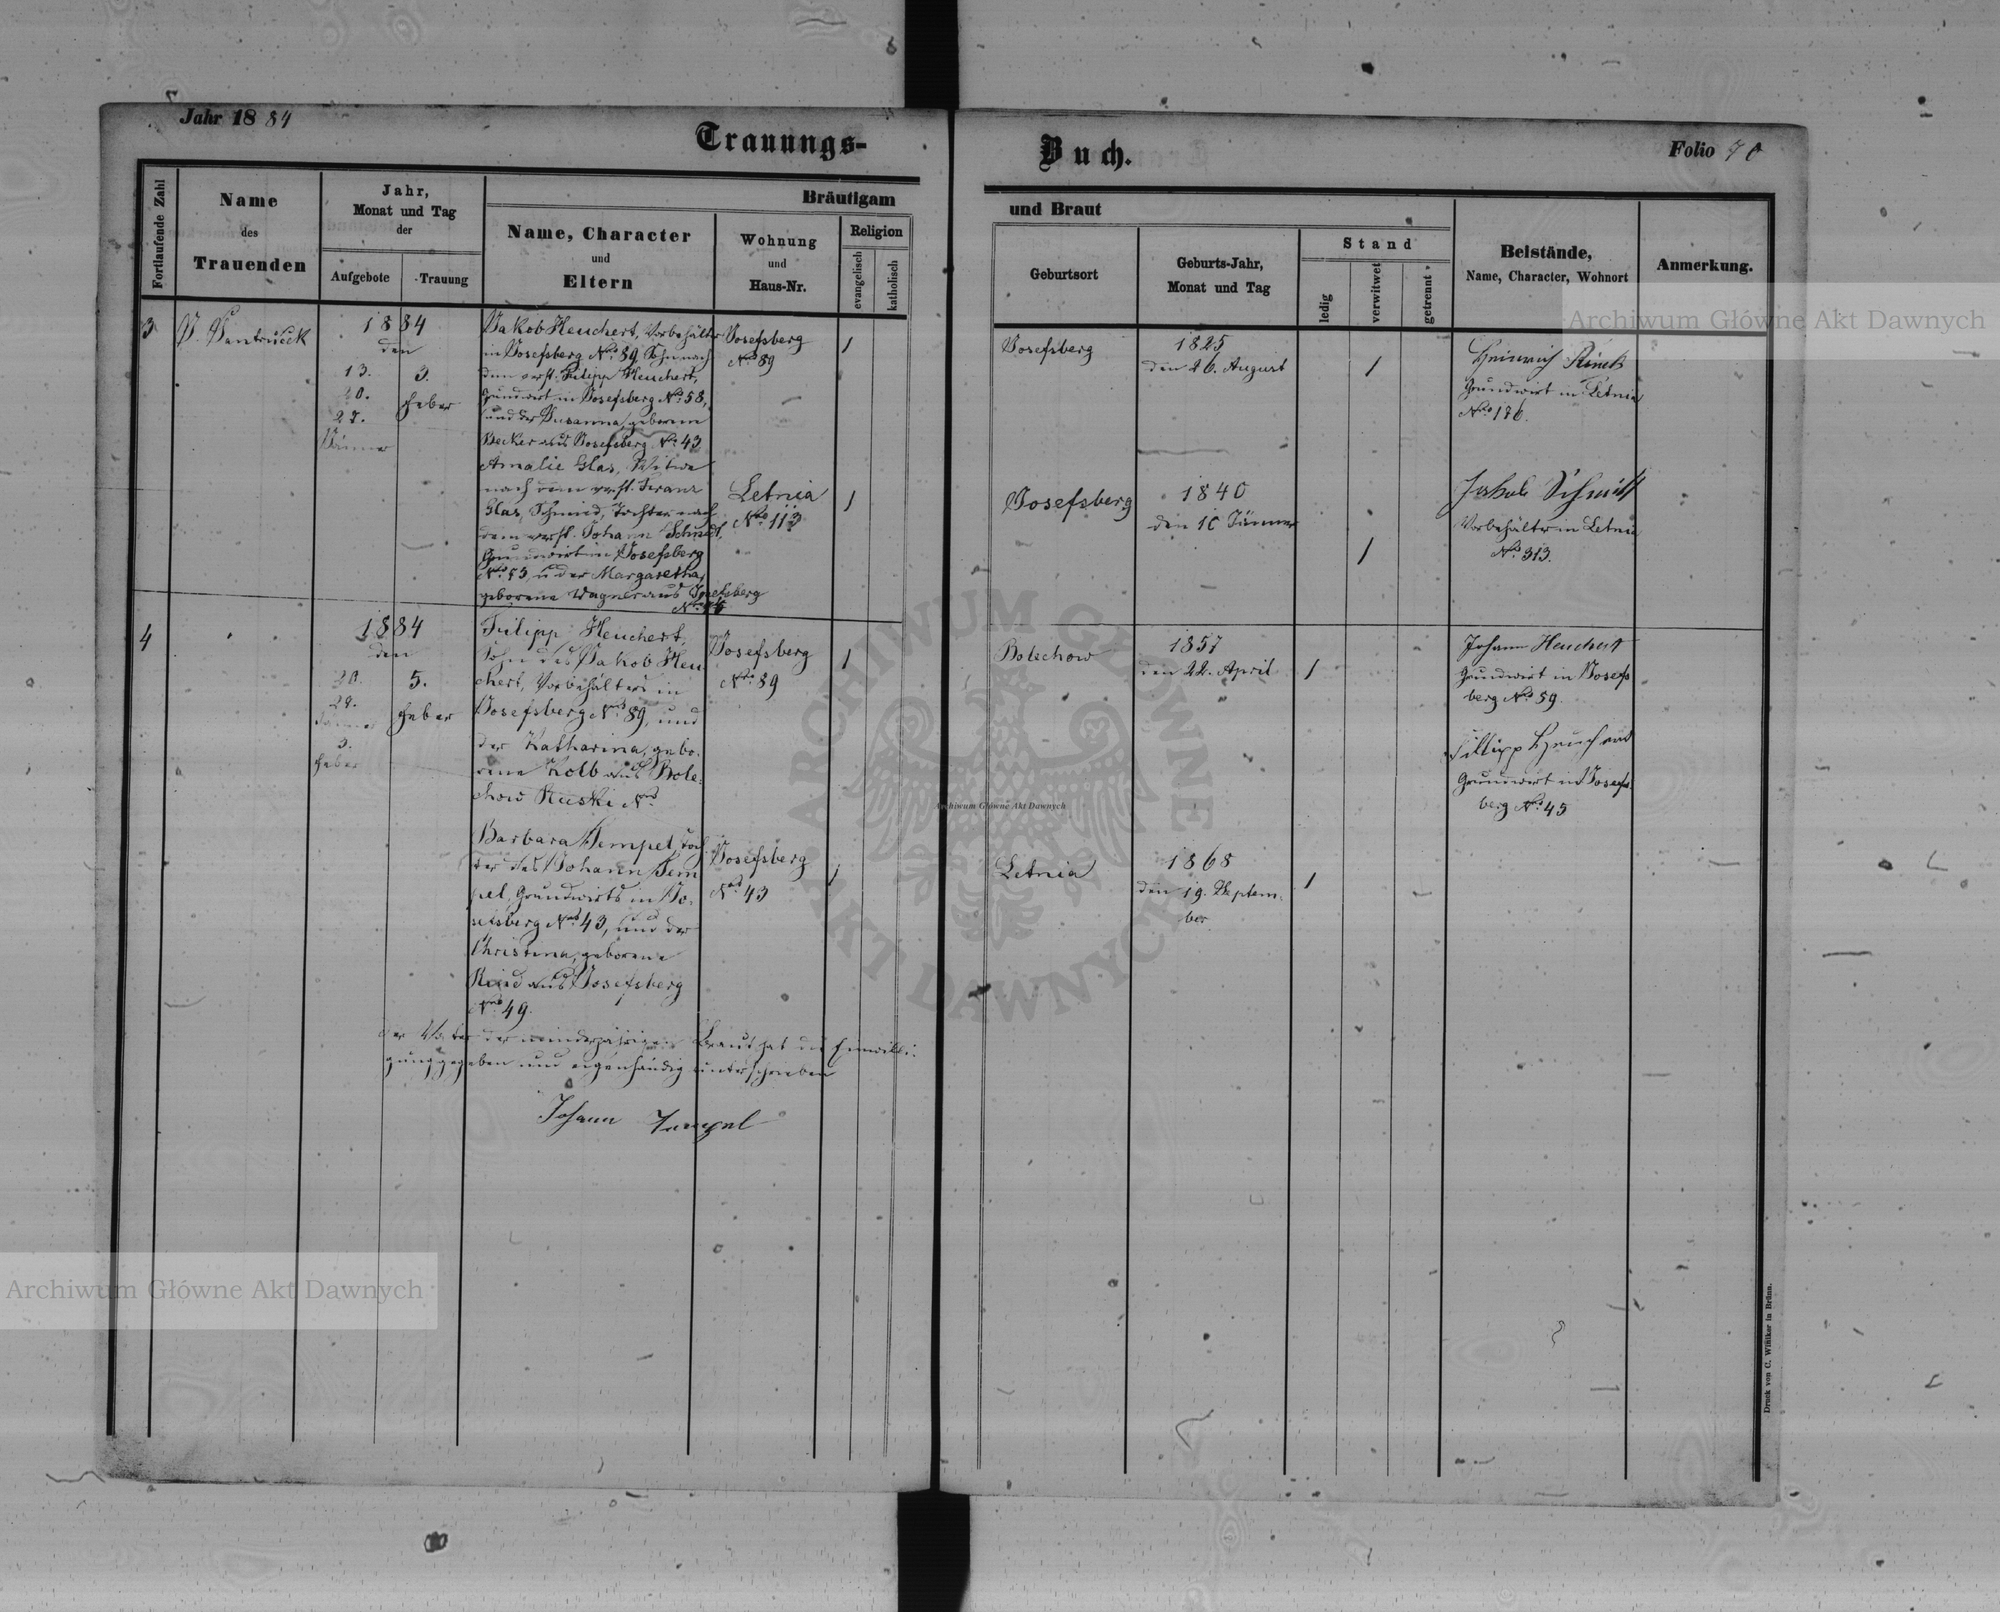 Jahr 1884
Trauungs-Buch.
Folio 70
Fortlaufende Zahl
Name
des
Trauenden
Jahr,
Monat und Tag
der
Aufgebote
Trauung
Bräutigam
und Braut
Name, Character
und
Eltern
Wohnung
und
Haus-Nr.
Religion
evangelisch
katholisch
Geburtsort
Geburts-Jahr,
Monat und Tag
Stand
ledig
verwitwet
getrennt
Beistände,
Name, Character, Wohnort
Anmerkung.
3
1884
den
13.
20.
27.
Jänner
3.
Feber
Jakob Heuchert, Vorbehälter
in Josefsberg No 89, Sohn nach
dem verst. Filipp Heuchert,
Grundwirt in Josefsberg No 58,
und der Susanna, geborene
Becker aus Josefsberg No 43
Josefsberg
No 89
Josefsberg
1825
den 26. August
Heinrich
Grundwirt in Letnia
No 176.
Amalie Glas, Witwe
nach dem verst. Franz
Glas, Schmied, Tochter nach
dem verst. Johann Schmidt,
Grundwirt in Josefsberg
u der Margaretha,
geborene Wagner aus Josefsberg
Letnia
No 113
Josefsberg
1840
Jänner
Jakob Schmitt
Vorbehälter in Letnia
No 313.
4
1884
den
20.
Jänner
3.
Feber
5.
Feber
Filipp Heuchert,
Sohn des Jakob Heu
chert, Vorbehälters in
Josefsberg No 89, und
der Katharina, gebo-
rene Kolb aus Bole-
chow Ruski No
Josefsberg
No 89
Bolechow
1857
den 22. April
Johann Heuchert
Grundwirt in Josefs
berg No 59.
Fillipp
Grundwirt in Josefs
berg No 45
Barbara Tempel, Toch
ter des Johann Tem
pel, Grundwirts in Jo-
sefsberg No 43, und der
Christina, geborene
aus Josefsberg
No 49.
Josefsberg
No 43
Letnia
1868
den 19. Septem-
ber
Der Vater der minderjährigen Braut hat die Einwilli-
gung gegeben und eigenhändig unterschrieben
Johann Tempel
Druck von C. Winiker in Brünn.
Archiwum Główne Akt Dawnych
Archiwum Główne Akt Dawnych
Archiwum Główne Akt Dawnych
ARCHIWUM GŁÓWNE AKT DAWNYCH